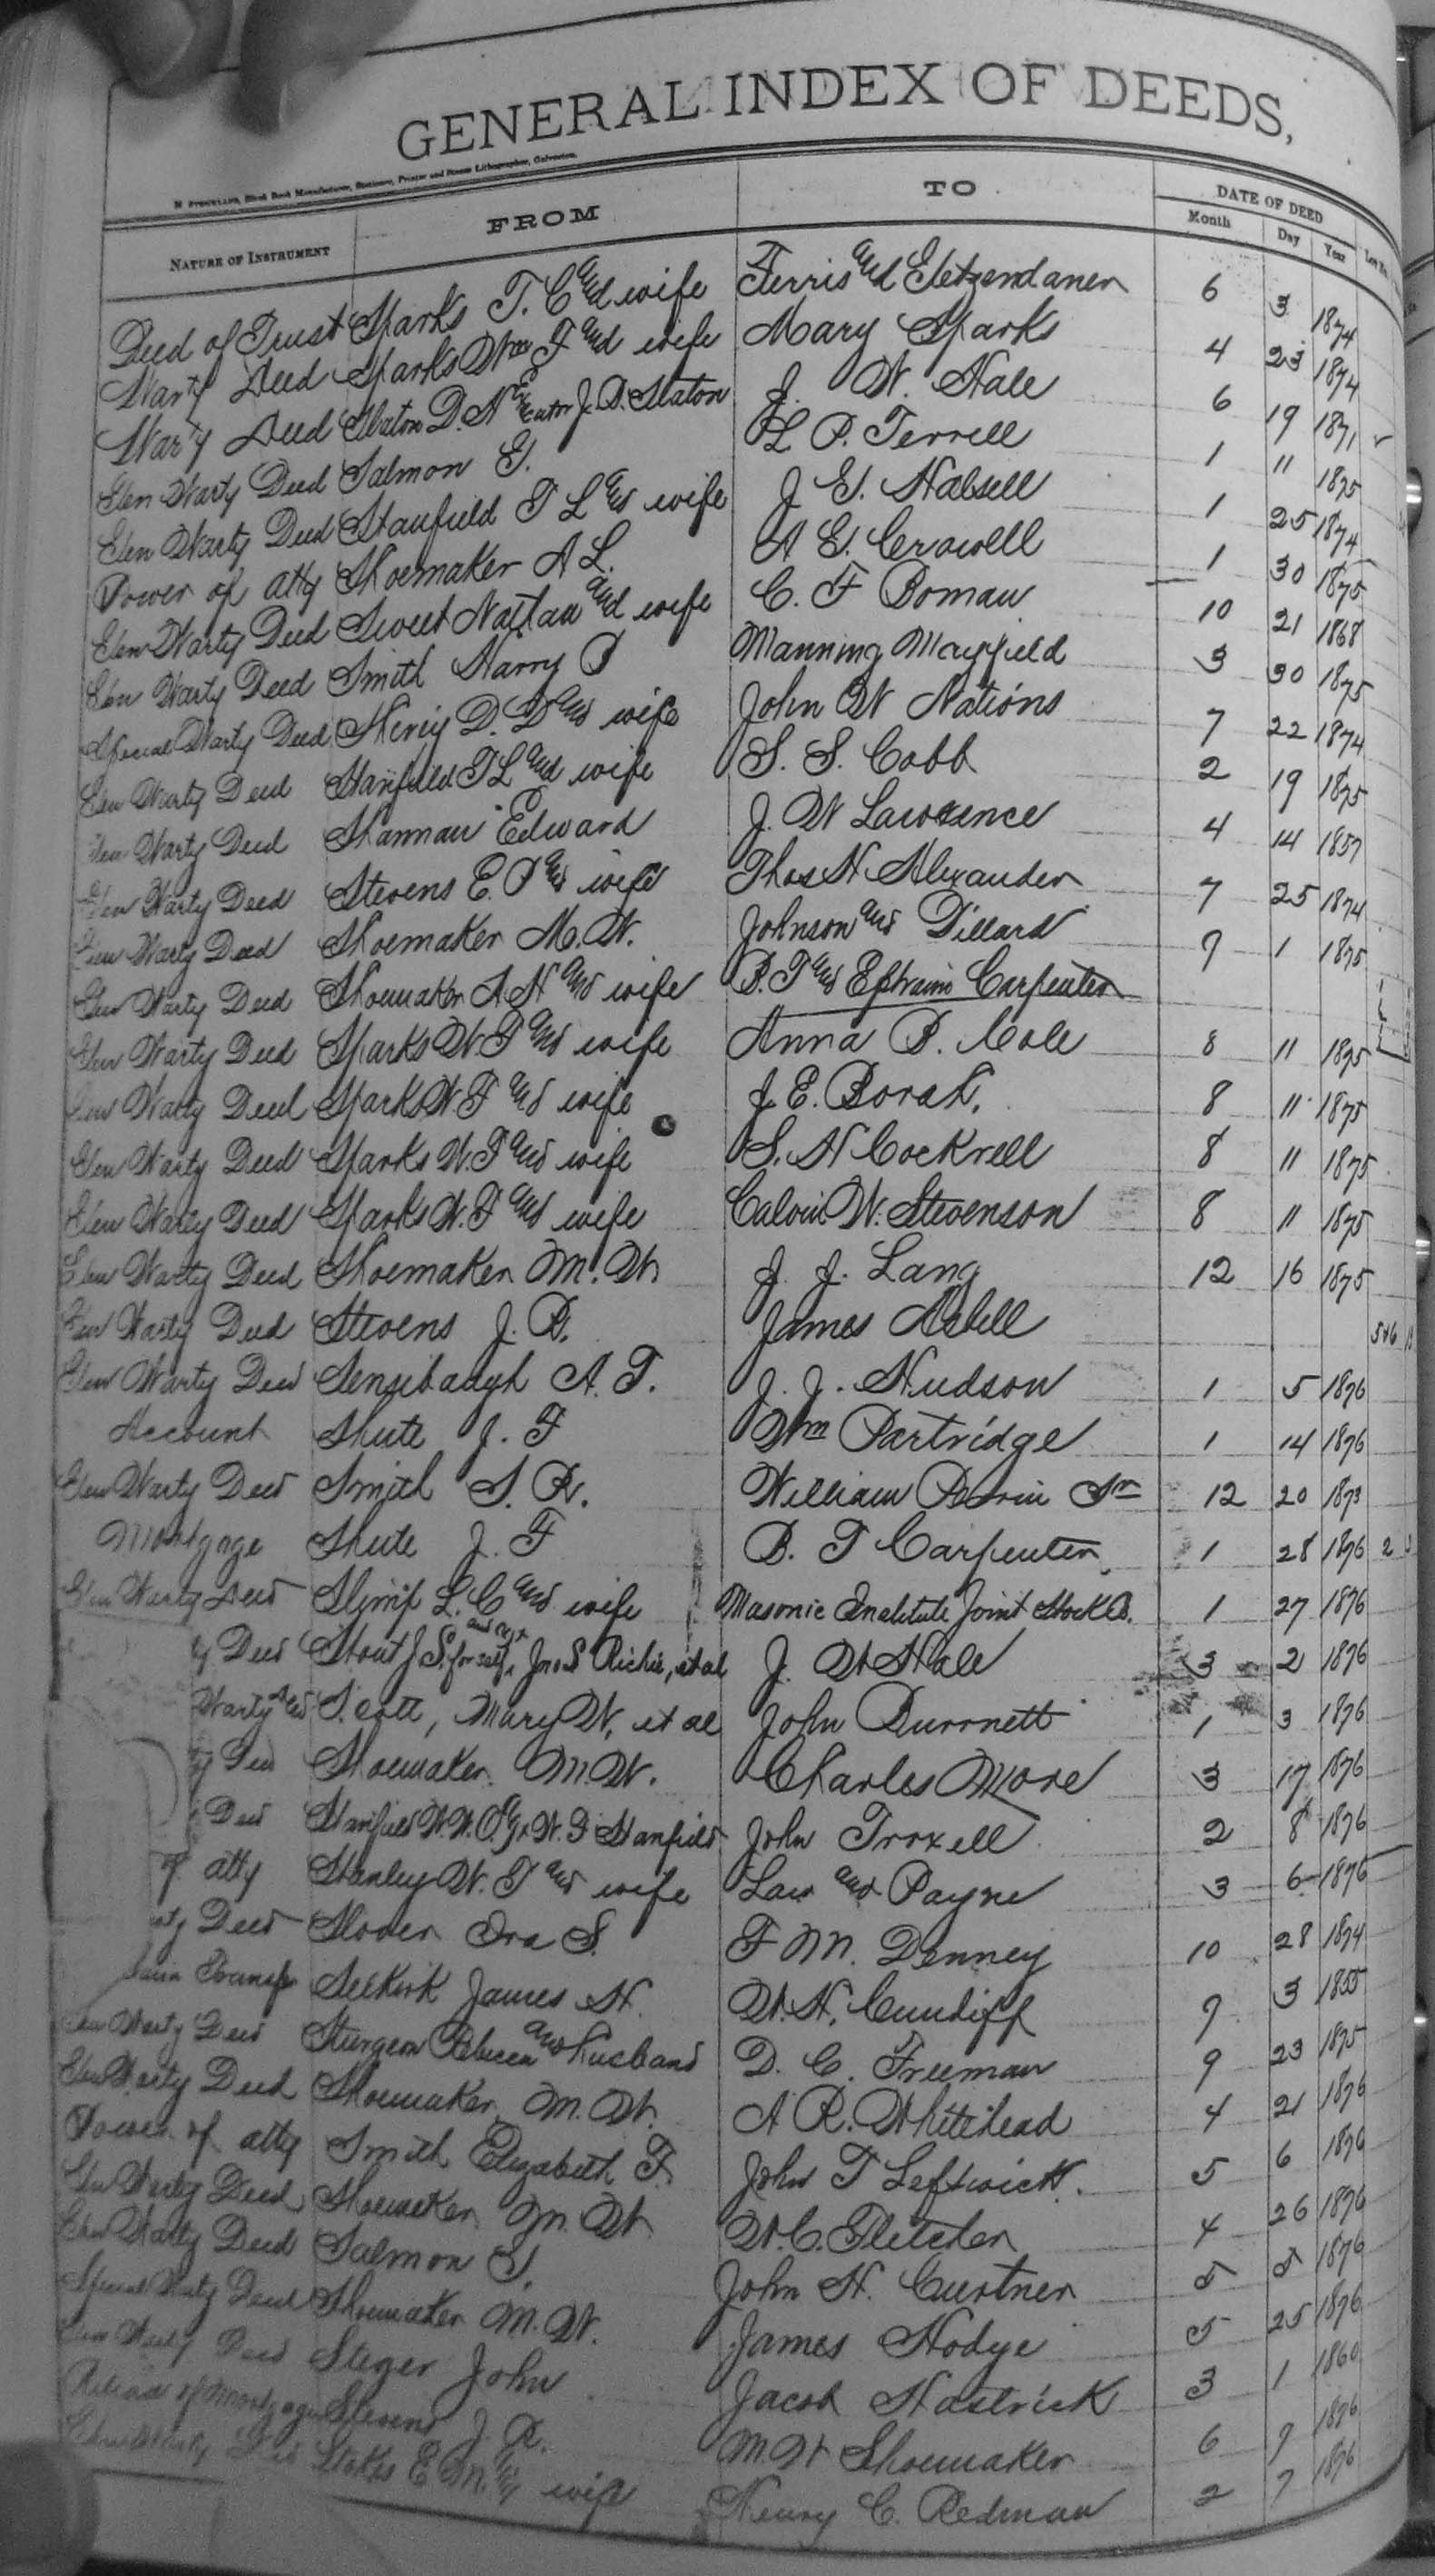 GENERAL INDEX OF DEEDS,
NATURE OF INSTRUMENT FROM TO DATE OF DEED
Month Day Year
Deed of Trust Sparks T. C and wife Ferris and Getzendaner 6 3 1874
Warty Deed Sparks Wm F and wife Mary Sparks 4 23 1874
War'y Deed Slaton D. H J. D. Slaton J. W. Hale 6 19 1871
Gen Warty Deed Salmon G. L P. Terrell 1 11 1875
Gen Warty Deed Stanfield T L and wife J G. Halsell 1 25 1874
Power of atty Shoemaker A L. A G. Crowell 1 30 1875
Gen Warty Deed Sweet Nathan and wife C. F Boman 10 21 1868
Gen Warty Deed Smith Harry P Manning Mayfield 3 30 1875
Special Warty Deed D. D and wife John W Nations 7 22 1874
Gen Warty Deed Stanfield T L and wife S. S. Cobb 2 19 1875
Gen Warty Deed Edward J. W Lawrence 4 14 1857
Gen Warty Deed Stevens E. P and wife Thos H Alexander 7 25 1874
Gen Warty Deed Shoemaker M. W. Johnson and Dillard 9 1 1875
Gen Warty Deed Shoemaker A. H and wife B. T and Ephraim Carpenter
Gen Warty Deed Sparks W. F and wife Anna B. Cole 8 11 1875
Gen Warty Deed Sparks W F and wife J E. Borah. 8 11 1875
Gen Warty Deed Sparks W. F and wife S. H Cockrell 8 11 1875
Gen Warty Deed Sparks W. F and wife Calvin W. Stevenson 8 11 1875
Gen Warty Deed Shoemaker M. W J. J. Lang 12 16 1875
Gen Warty Deed Stevens J. R. James Asbell 546
Gen Warty Deed Sensibaugh A. T. J. J. Hudson 1 5 1876
Account Shute J. F Wm Partridge 1 14 1876
Gen Warty Deed Smith S. R. William Perrin Sr 12 20 1873
Mortgage Shute J. F B. T Carpenter 1 28 1876 2
Gen Warty Deed L. C and wife Masonic Institute Joint Stock Co. 1 27 1876
y Deed Stout J S. for self and agt Jno S Richie, et al J. W Hale 3 2 1876
Warty Deed Scott, Mary W, et al John Burrnett 1 3 1876
y Deed Shoemaker M. W. Charles More 3 17 1876
Deed Stanfield W. W. W. F Stanfield John Troxell 2 8 1876
of atty Stanley W. T and wife Law and Payne 3 6 1876
ty Deed Slover Ora S. F M. Denney 10 28 1874
Transfer Selkirk James H. W. H. Cundiff 9 3 1855
Gen Warty Deed Sturgeon Rebecca and husband D. C. Freeman 9 23 1875
Gen Warty Deed Shoemaker M. W. A R. Whitehead 4 21 1876
Power of atty Smith Elizabeth F. John T Leftwich. 5 6 1876
Gen Warty Deed Shoemaker M. W W. C. Fletcher 4 26 1876
Gen Warty Deed Salmon G. John H. Curtner 5 5 1876
Special Warty Deed Shoemaker M. W. James Hodge 5 25 1876
Gen Warty Deed Steger John Jacob Hastrick 3 1 1860
Release of Mortgage Stevens J. R. M. W Shoemaker 6 9 1876
Gen Warty Deed Stokes E M. and wife Henry C. Redman 2 7 1876